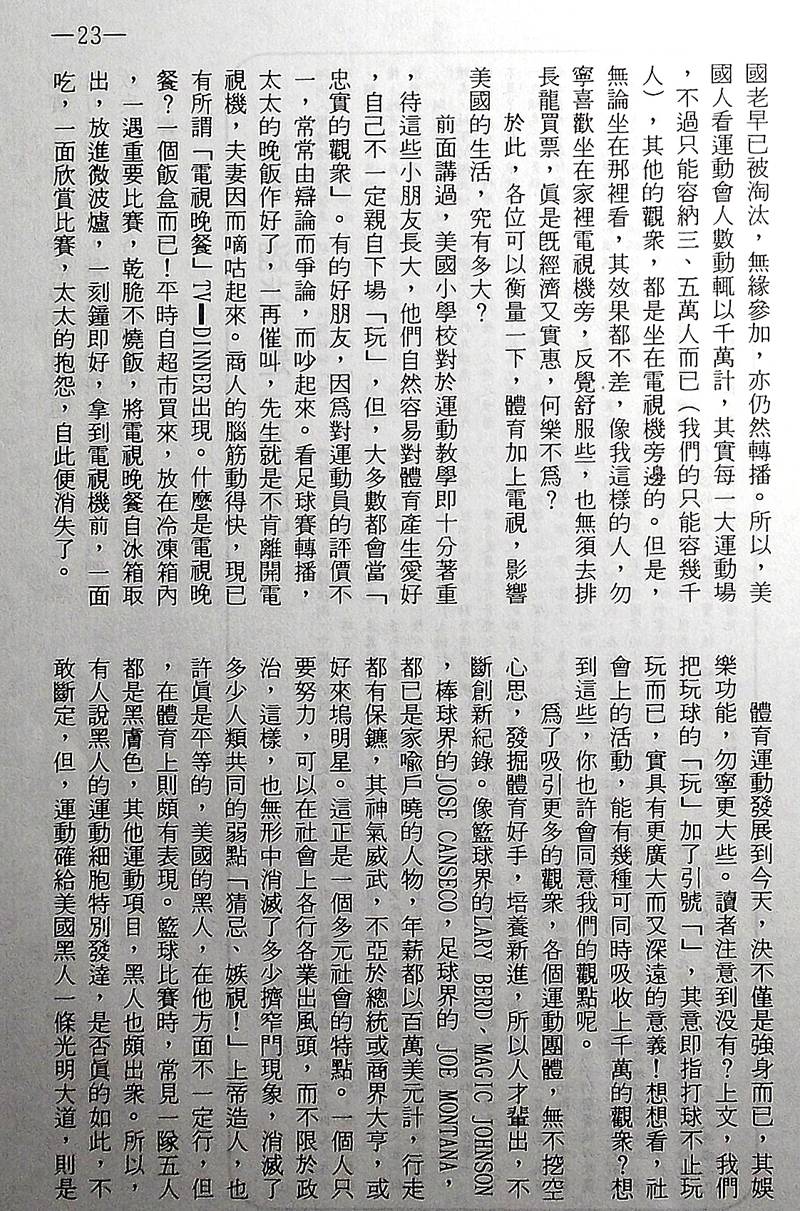 —23—
國老早已被淘汰，無緣參加，亦仍然轉播。所以，美
國人看運動會人數動輒以千萬計，其實每一大運動場
，不過只能容納三、五萬人而已（我們的只能容幾千
人），其他的觀衆，都是坐在電視機旁邊的。但是，
無論坐在那裡看，其效果都不差，像我這樣的人，勿
寧喜歡坐在家裡電視機旁，反覺舒服些，也無須去排
長龍買票，眞是旣經濟又實惠，何樂不爲？
於此，各位可以衡量一下，體育加上電視，影響
美國的生活，究有多大？
前面講過，美國小學校對於運動教學即十分著重
，待這些小朋友長大，他們自然容易對體育產生愛好
，自己不一定親自下場「玩」，但，大多數都會當「
忠實的觀衆」。有的好朋友，因爲對運動員的評價不
一，常常由辯論而爭論，而吵起來。看足球賽轉播，
太太的晚飯作好了，一再催叫，先生就是不肯離開電
視機，夫妻因而嘀咕起來。商人的腦筋動得快，現已
有所謂「電視晚餐」TV—DINNER出現。什麼是電視晚
餐？一個飯盒而已！平時自超市買來，放在冷凍箱內
，一遇重要比賽，乾脆不燒飯，將電視晚餐自冰箱取
出，放進微波爐，一刻鐘即好，拿到電視機前，一面
吃，一面欣賞比賽，太太的抱怨，自此便消失了。
體育運動發展到今天，決不僅是強身而已，其娛
樂功能，勿寧更大些。讀者注意到没有？上文，我們
把玩球的「玩」加了引號「」，其意即指打球不止玩
玩而已，實具有更廣大而又深遠的意義！想想看，社
會上的活動，能有幾種可同時吸收上千萬的觀衆？想
到這些，你也許會同意我們的觀點呢。
爲了吸引更多的觀衆，各個運動團體，無不挖空
心思，發掘體育好手，培養新進，所以人才輩出，不
斷創新紀錄。像籃球界的LARY BERD、MAGIC JOHNSON
，棒球界的JOSE CANSECO，足球界的 JOE MONTANA，
都已是家喩戶曉的人物，年薪都以百萬美元計，行走
都有保鑣，其神氣威武，不亞於總統或商界大亨，或
好來塢明星。這正是一個多元社會的特點。一個人只
要努力，可以在社會上各行各業出風頭，而不限於政
治，這樣，也無形中消滅了多少擠窄門現象，消滅了
多少人類共同的弱點「猜忌、嫉視！」上帝造人，也
許眞是平等的，美國的黑人，在他方面不一定行，但
，在體育上則頗有表現。籃球比賽時，常見一隊五人
都是黑膚色，其他運動項目，黑人也頗出衆。所以，
有人說黑人的運動細胞特別發達，是否眞的如此，不
敢斷定，但，運動確給美國黑人一條光明大道，則是